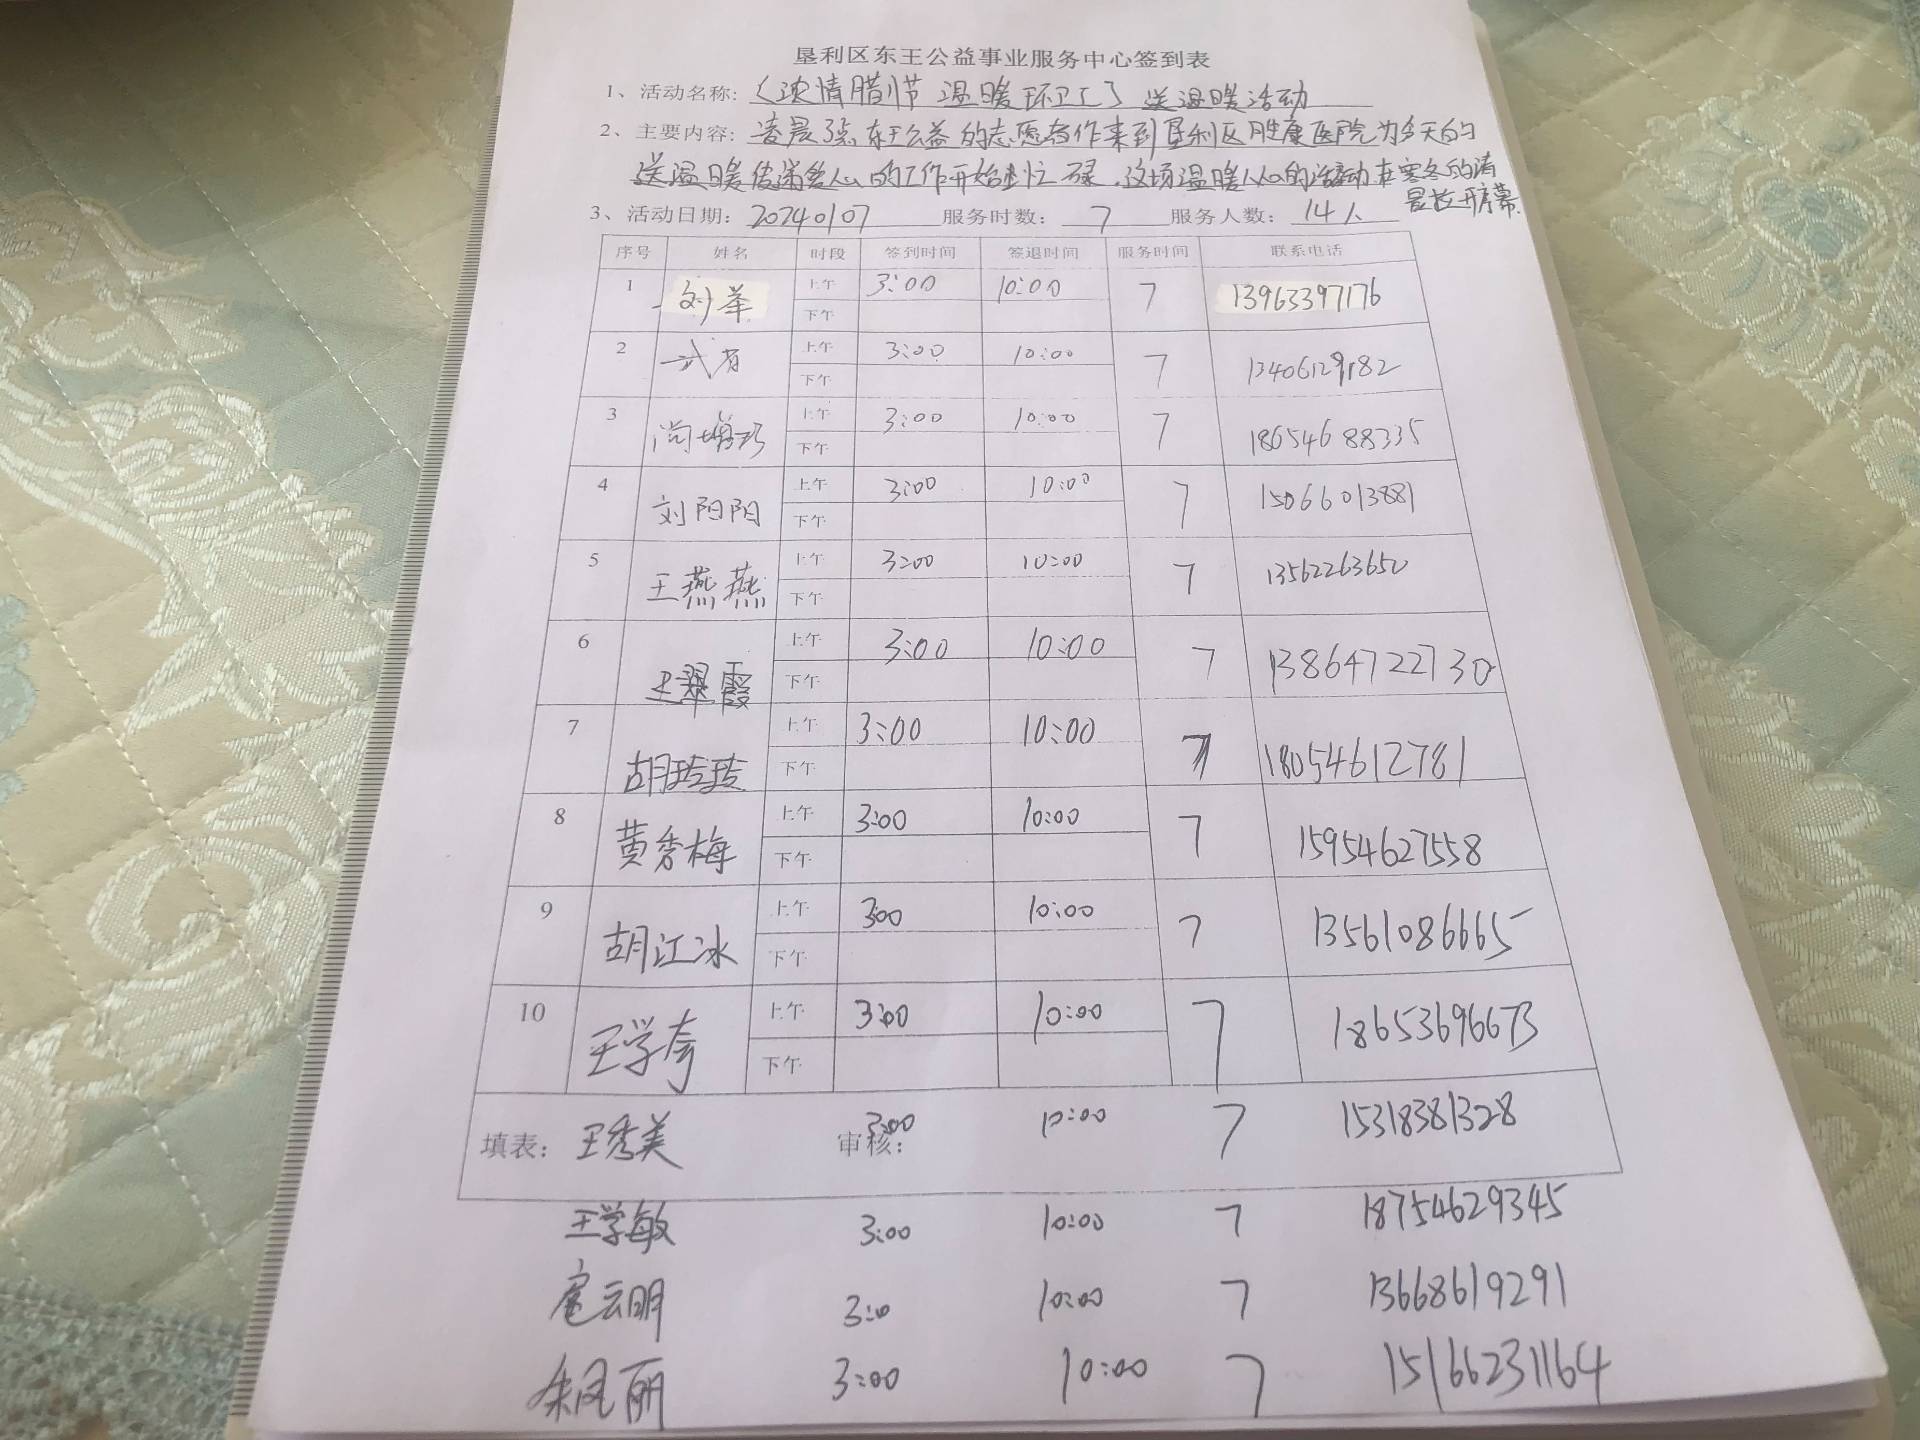 垦利区东王公益事业服务中心签到表
1、活动名称:《浓情腊八节 温暖环卫工》送温暖活动
2、主要内容:凌晨3点 东王公益的志愿者们来到垦利区胜康医院为今天的
送温暖传递爱心的工作开始忙碌.这场温暖人心的活动在寒冬的清
晨拉开序幕.
3、活动日期:20240107 服务时数:7 服务人数:14人
序号 姓名 时段 签到时间 签退时间 服务时间 联系电话
1 刘萍 上午 3:00 10:00 7 13963397176
下午
2 武 上午 3:00 10:00 7 13406129182
下午
3 尚 上午 3:00 10:00 7 18654688335
下午
4 刘阳阳 上午 3:00 10:00 7 15066013881
下午
5 王燕燕 上午 3:00 10:00 7 13562263650
下午
6 王翠霞 上午 3:00 10:00 7 13864722730
下午
7 胡玲玲 上午 3:00 10:00 7 18054612781
下午
8 黄秀梅 上午 3:00 10:00 7 15954627558
下午
9 胡江冰 上午 3:00 10:00 7 13561086665
下午
10 王学 上午 3:00 10:00 7 18653696673
下午
填表: 王秀美 审核: 3:00 10:00 7 15318381328
王学敏 3:00 10:00 7 18754629345
扈云明 3:0 10:00 7 13668619291
朱凤丽 3:00 10:00 7 15166231164